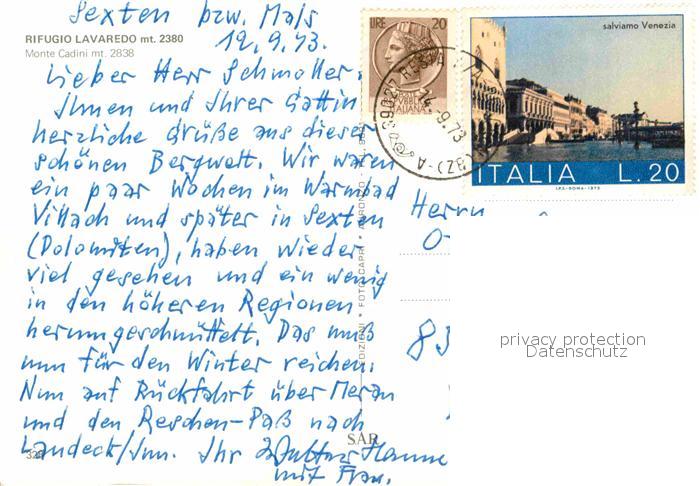 Sexten bzw. Mals
12.9.73.
RIFUGIO LAVAREDO mt. 2380
Monte Cadini mt. 2838
Lieber Herr Schmoller.
Ihnen und Ihrer Gattin
herzliche Grüße aus dieser
schönen Bergwelt. Wir waren
ein paar Wochen im Warmbad
Villach und später in Sexten
(Dolomiten), haben wieder
viel gesehen und ein wenig
in den höheren Regionen
herumgeschnüffelt. Das muß
nun für den Winter reichen.
Nun auf Rückfahrt über Meran
und den Reschen-Paß nach
Landeck/Inn. Ihr
mit Frau.
SAR
EDIZIONI * FOTO CAPRI *
LIRE 20
salviamo Venezia
ITALIA L.20
I.P.S.-ROMA-1973
14.9.73
(BZ)
Herrn
O-
83
privacy protection
Datenschutz